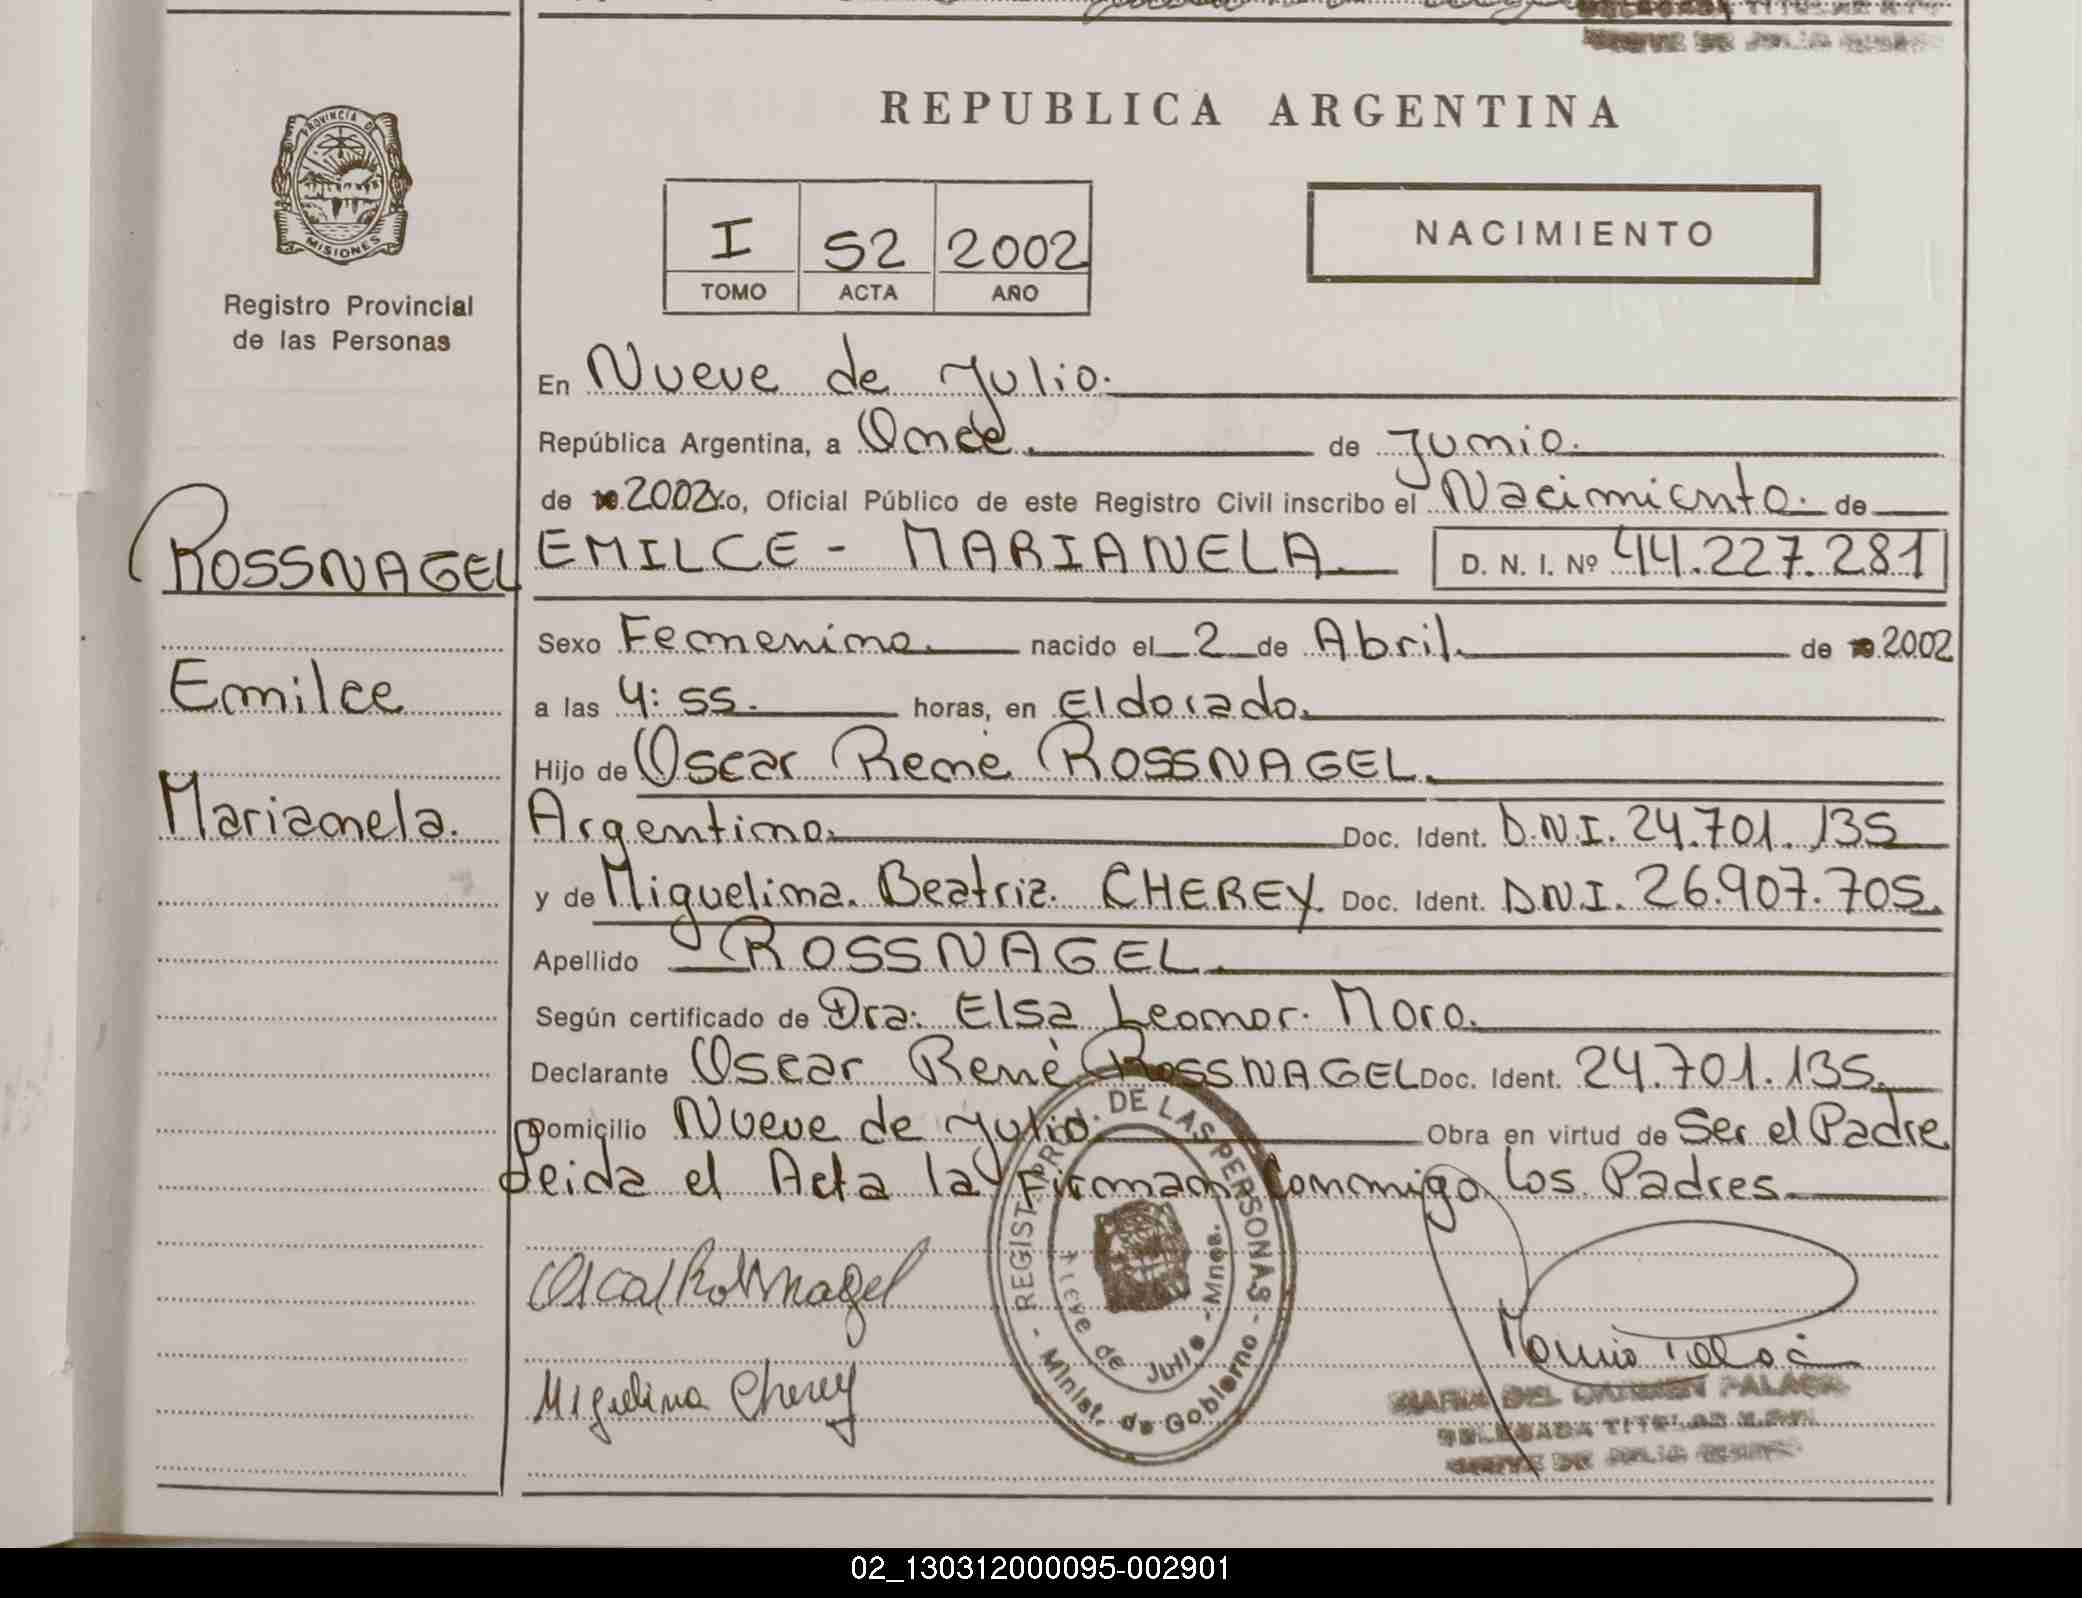 REPUBLICA ARGENTINA
PROVINCIA DE
MISIONES
Registro Provincial
de las Personas
I 52 2002
TOMO ACTA AÑO
NACIMIENTO
En Nueve de Julio.
República Argentina, a Once. de Junio.
de 2002 Yo, Oficial Público de este Registro Civil inscribo el Nacimiento. de
ROSSNAGEL
EMILCE - MARIANELA. D. N. I. Nº 44.227.281
Sexo Femenino. nacido el 2 de Abril. de 2002
Emilce
a las 4:55. horas, en Eldorado.
Hijo de Oscar René ROSSNAGEL.
Marianela.
Argentino. Doc. Ident. D.N.I. 24.701.135
y de Miguelina. Beatriz. CHEREY. Doc. Ident. DNI. 26.907.705.
Apellido ROSSNAGEL.
Según certificado de Dra: Elsa Leonor. Moro.
Declarante Oscar René ROSSNAGEL Doc. Ident. 24.701.135.
Domicilio Nueve de Julio. Obra en virtud de Ser el Padre
Leida el Acta la Firman Conmigo los Padres.
Oscar Rossnagel
Miguelina Cherey
REGIST. PROV. DE LAS PERSONAS
Nueve de Julio - Mnes.
- Minist. de Gobierno -
MARIA DEL CARMEN PALACIO
DELEGADA TITULAR
NUEVE DE JULIO
02_130312000095-002901